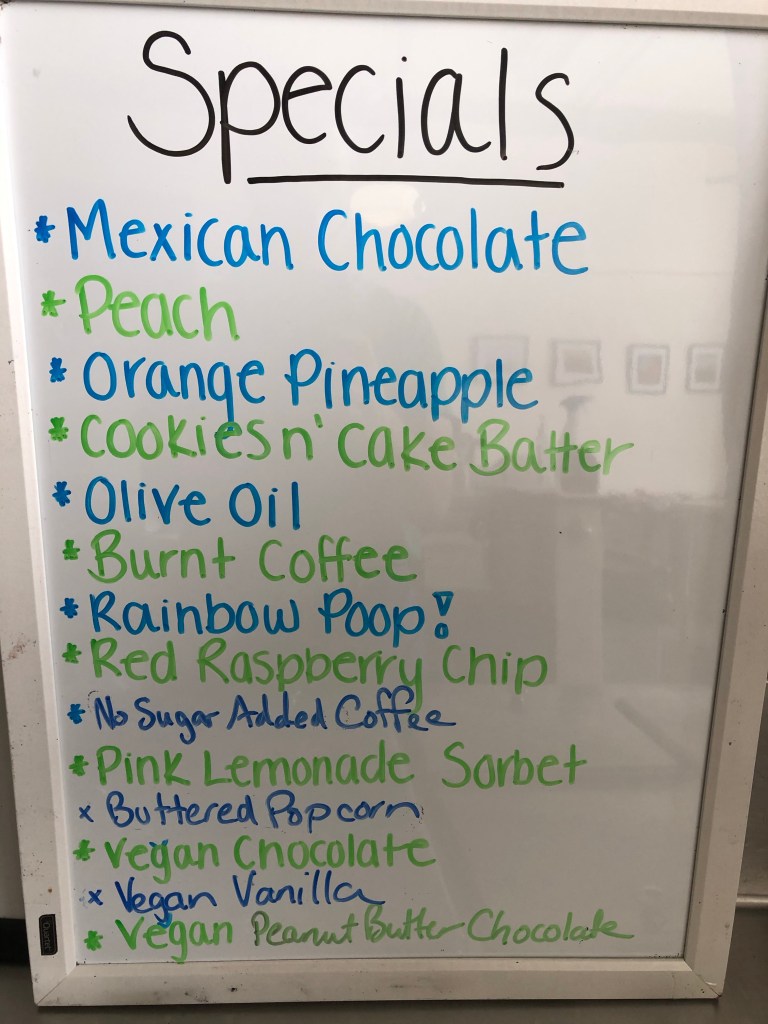 Specials
* Mexican Chocolate
* Peach
* Orange Pineapple
* Cookies n' Cake Batter
* Olive Oil
* Burnt Coffee
* Rainbow Poop!
* Red Raspberry Chip
* No Sugar Added Coffee
* Pink Lemonade Sorbet
x Buttered Popcorn
* Vegan Chocolate
x Vegan Vanilla
* Vegan Peanut Butter Chocolate
Quartet